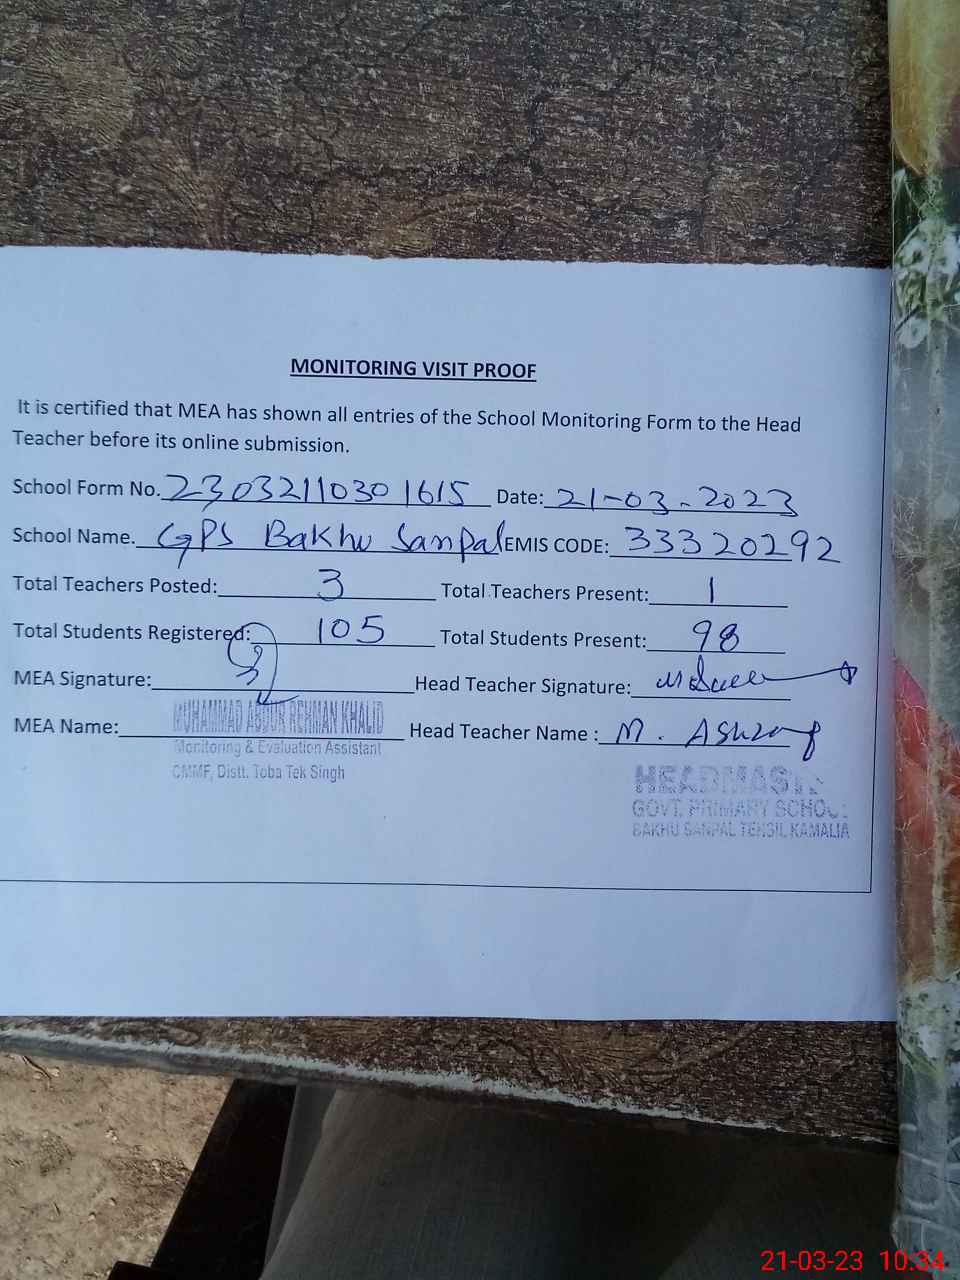 MONITORING VISIT PROOF
It is certified that MEA has shown all entries of the School Monitoring Form to the Head
Teacher before its online submission.
School Form No. 2303211030 1615 Date: 21-03-2023
School Name. GPS Bakhu Sanpal EMIS CODE: 33320292
Total Teachers Posted: 3 Total Teachers Present: 1
Total Students Registered: 105 Total Students Present: 98
MEA Signature: Head Teacher Signature:
MEA Name: MUHAMMAD ABDUR REHMAN KHALID Head Teacher Name : M. Ashraf
Monitoring & Evaluation Assistant
CMMF, Distt. Toba Tek Singh
GOVT. PRIMARY SCHOOL
BAKHU SANPAL TEHSIL KAMALIA
21-03-23 10:34